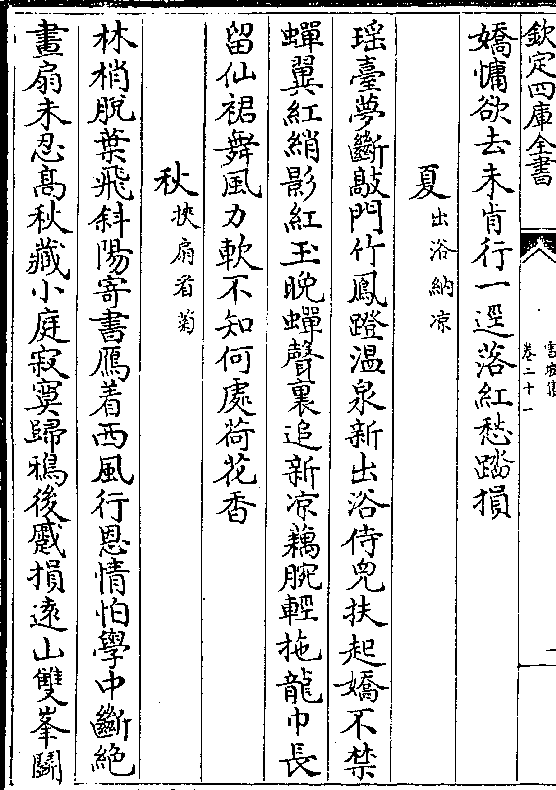 欽定四庫全書
卷二十一
嬌慵欲去未肯行一逕落紅愁踏損
夏出浴納凉
瑶臺夢斷敲門竹鳳蹬温泉新出浴侍兒扶起嬌不禁
蟬翼紅綃影紅玉晚蟬聲裏追新凉藕腕輕拖龍巾長
留仙裙舞風力軟不知何處荷花香
秋挾扇看菊
林梢脫葉飛斜陽寄書鴈着西風行恩情怕學中斷絶
畫扇未忍髙秋藏小庭寂寞歸鴉後蹙損逺山雙峯鬭